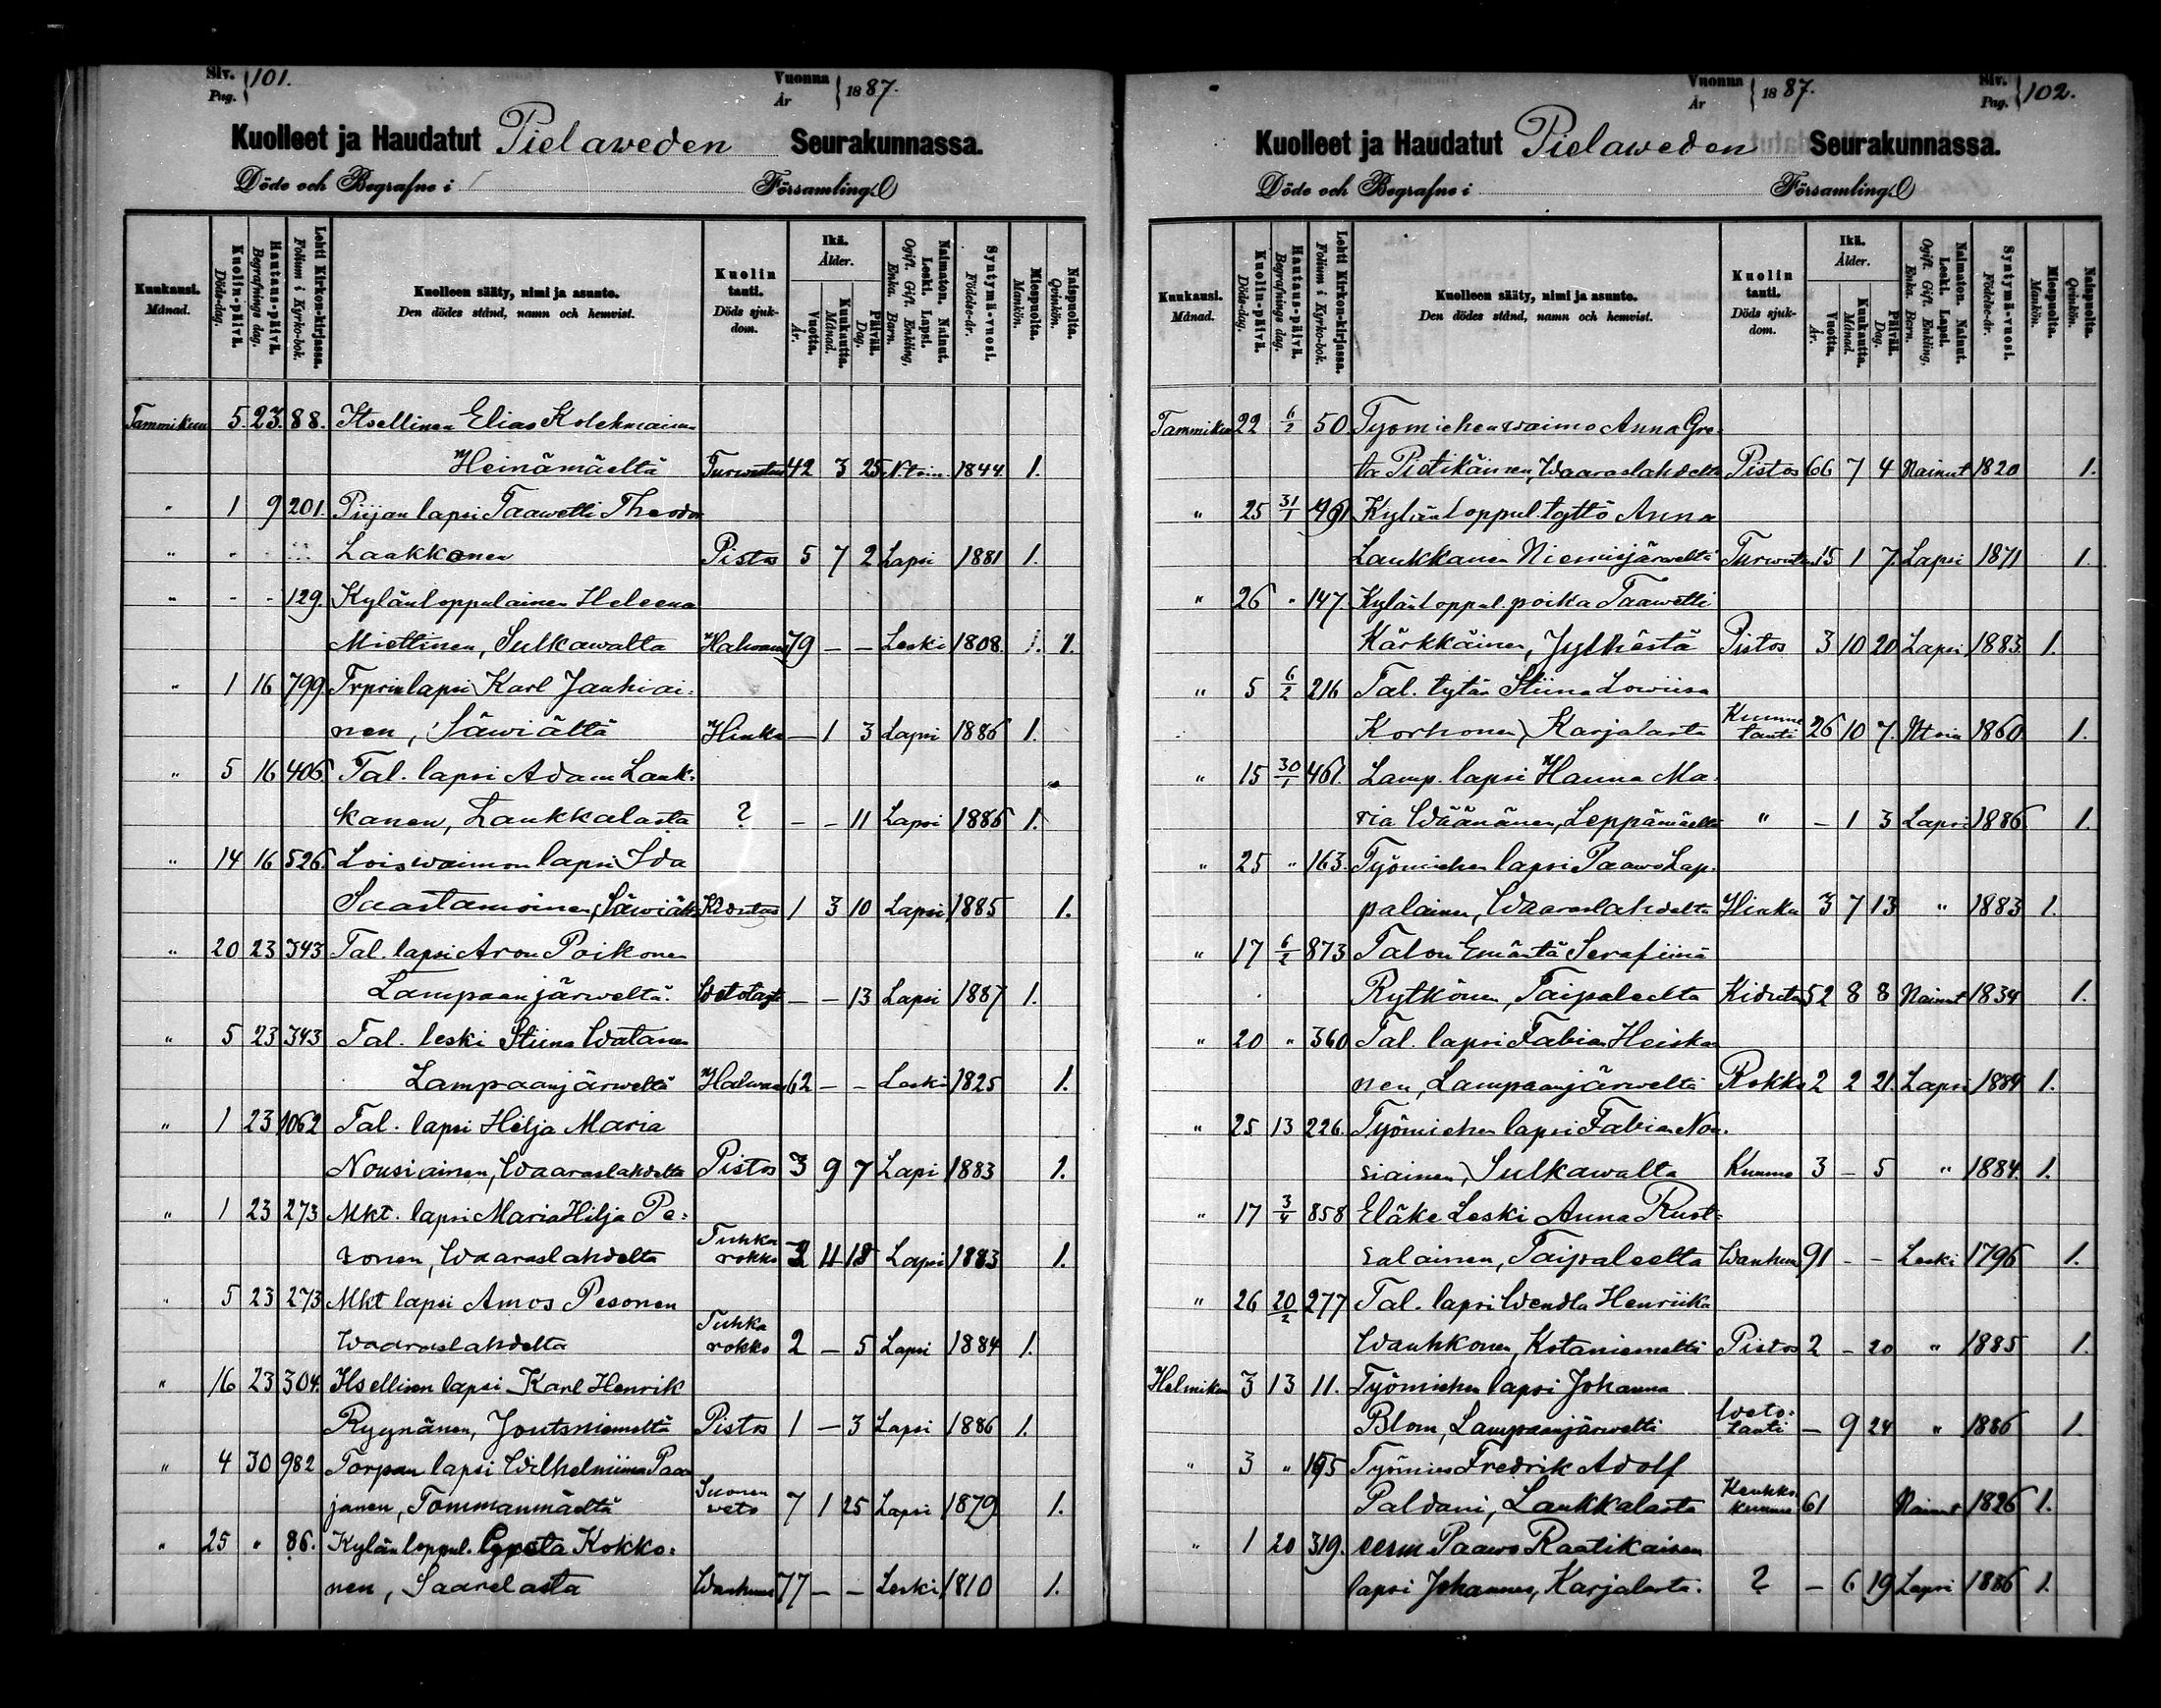 Siv. Pag. 101. Vuonna År 1887.
Kuolleet ja Haudatut Pielaweden Seurakunnassa.
Döde och Begrafne i Församling.
Kuukausi. Månad. Kuolin-päivä. Döds-dag. Hautaus-päivä. Begrafnings dag. Lehti Kirkon-kirjassa. Folium i Kyrko-bok. Kuolleen sääty, nimi ja asunto. Den dödes stånd, namn och hemvist. Kuolin tauti. Döds sjukdom. Ikä. Ålder. Vuotta. År. Kuukautta. Månad. Päivää. Dag. Naimaton. Nainut. Leski. Lapsi. Ogift. Gift. Enkling, Enka. Barn. Syntymä-vuosi. Födelse-år. Miespuolta. Mankön. Naispuolta. Qvinkön.
Tammikuu 5. 23. 88. Itsellinen Elias Kolehmainen
Heinämäeltä Turwutus 42 3 25 N:toin 1844. 1.
" 1 9 201. Piijan lapsi Taawetti Theodor
" " Laakkonen Pistos 5 7 2 Lapsi 1881 1.
" - - 129. Kylänloppulainen Heleena
Miettinen, Sulkawalta Halwaus 79 - - Leski 1808. 1. 1.
" 1 16 799 Trprin lapsi Karl Jauhiai-
nen, Säwiältä Hinku - 1 3 Lapsi 1886 1.
" 5 16 406. Tal. lapsi Adam Lauk-
kanen, Laukkalasta ? - - 11 Lapsi 1886 1.
" 14 16 526. Loiswaimon lapsi Ida
Saastamoinen, Säwiält Kidutus 1 3 10 Lapsi 1885 1.
" 20 23 343 Tal. lapsi Aron Poikonen
Lampaanjärweltä. Wetotauti - - 13 Lapsi 1887 1.
" 5 23 343 Tal. leski Stiina Watanen
Lampaanjärweltä Halwaus 62 - - Leski 1825 1.
" 1 23 1062 Tal. lapsi Hilja Maria
Nousiainen, Waaraslahdelta Pistos 3 9 7 Lapsi 1883 1.
" 1 23 273 Mkt. lapsi Maria Hilja Pe-
sonen, Waaraslahdelta Tuhka rokko 3 4 18 Lapsi 1883 1.
" 5 23 273 Mkt lapsi Amos Pesonen
Waaraslahdelta Tuhka rokko 2 - 5 Lapsi 1884 1.
" 16 23 304. Itsellisen lapsi Karl Henrik
Ryynänen, Joutsniemeltä Pistos 1 - 3 Lapsi 1886 1.
" 4 30 982 Torpan lapsi Wilhelmiina Paa
janen, Tommanmäeltä Suonen weto 7 1 25 Lapsi 1879. 1.
" 25 " 86. Kylän loppul. Kokko-
nen, Saarelasta Wanhuus 77 - - Leski 1810 1.
Vuonna År 1887. Siv. Pag. 102.
Kuolleet ja Haudatut Pielaweden Seurakunnassa.
Döde och Begrafne i Församling.
Kuukausi. Månad. Kuolin-päivä. Döds-dag. Hautaus-päivä. Begrafnings dag. Lehti Kirkon-kirjassa. Folium i Kyrko-bok. Kuolleen sääty, nimi ja asunto. Den dödes stånd, namn och hemvist. Kuolin tauti. Döds sjukdom. Ikä. Ålder. Vuotta. År. Kuukautta. Månad. Päivää. Dag. Naimaton. Nainut. Leski. Lapsi. Ogift. Gift. Enkling, Enka. Barn. Syntymä-vuosi. Födelse-år. Miespuolta. Mankön. Naispuolta. Qvinkön.
Tammikuu 22 6/2 50. Tyomiehen waimo Anna Gre-
ta Pietikäinen, Waaraslahdelta Pistos 66 7 4 Nainut 1820 1.
" 25 31/1 Kylänloppul. tyttö Anna
Laukkanen Niemisjärweltä Turwutus 15 1 7. Lapsi 1871 1.
" 26 " 147. Kylänloppul. poika Taawetti
Kärkkäinen, Jylhästä Pistos 3 10 20 Lapsi 1883. 1.
" 5 6/2 216 Tal. tytär Stiina Lowiisa
Korhonen, Karjalasta Kuume tauti 26 10 7. Ntoin 1860. 1.
" 15 30/1 461. Lamp. lapsi Hanna Ma-
ria Wäänänen, Leppämäeltä " - 1 3 Lapsi 1886 1.
" 25 " 163. Työmiehen lapsi Paawo Lap-
palainen, Waaraslahdelta Hinku 3 7 13 " 1883 1.
" 17 6/2 873 Talon Emäntä Serafiina
Rytkönen, Taipaleelta Kidutus 52 8 8 Nainut 1834 1.
" 20 " 360 Tal. lapsi Fabian Heiska
nen, Lampaanjärweltä Rokko 2 2 21. Lapsi 1884 1.
" 25 13 226. Työmiehen lapsi Fabian Nou-
siainen, Sulkawalta Kuume 3 - 5 " 1884. 1.
" 17 3/4 858 Eläke Leski Anna Ruot-
salainen, Taipaleelta Wanhuus 91 - - Leski 1796 1.
" 26 20/2 277 Tal. lapsi Wendla Henriika
Wauhkonen, Kotaniemeltä Pistos 2 - 20 " 1885 1.
Helmikuu 3 13 11. Työmiehen lapsi Johanna
Blom, Lampaanjärwelti Weto- tauti - 9 24 " 1886 1.
" 3 " 195 Työmies Fredrik Adolf
Paldani, Laukkalasta Keuhko kuume 61 Nainut 1826 1.
" 1 20 319. Paawo Raatikaisen
lapsi Johannes, Karjalasta. ? - 6 19 Lapsi 1886 1.